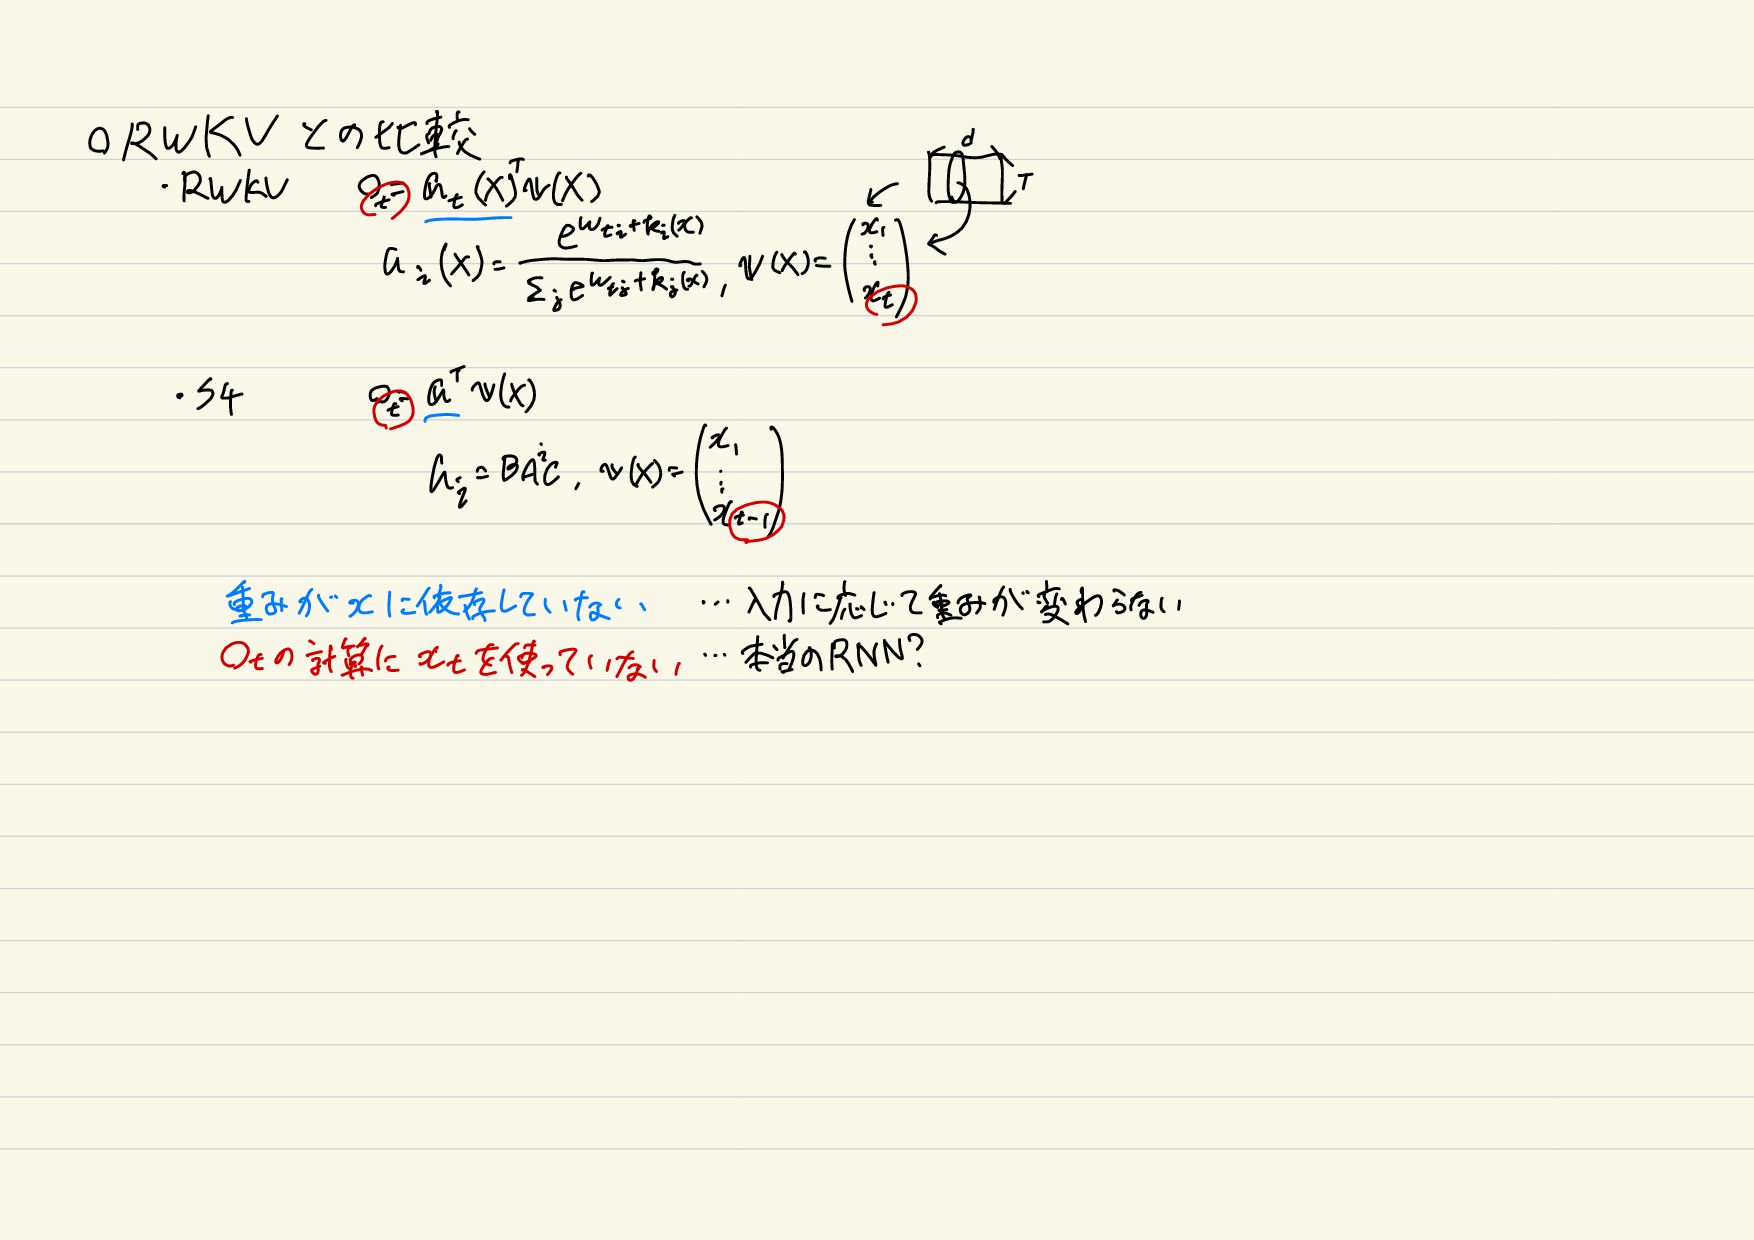 ○RWKVとの比較
・RWKV o_t = a_t(X)^T v(X)
d
T
a_i(X) = e^{w_{ti}+k_i(x)} / Σ_j e^{w_{tj}+k_j(x)}, v(X) = (x_1 ⋮ x_t)
・S4 o_t = a^T v(X)
a_i = BA^iC, v(X) = (x_1 ⋮ x_{t-1})
重みがxに依存していない …入力に応じて重みが変わらない
O_tの計算にx_tを使っていない …本当のRNN?